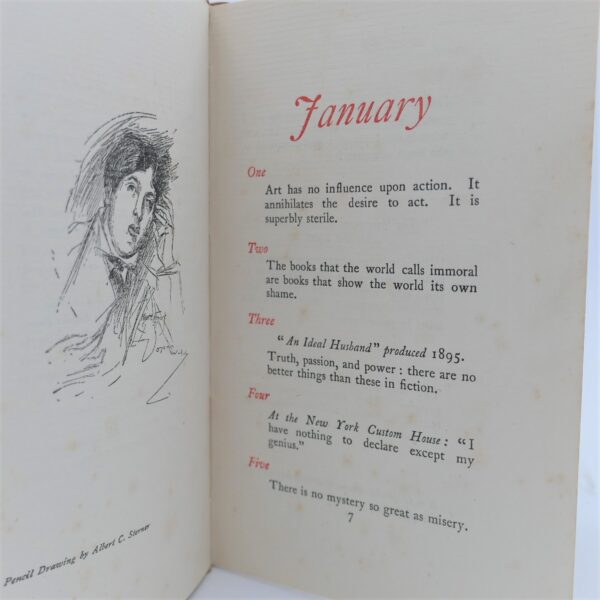 Pencil Drawing by Albert C. Sterner
January
One
Art has no influence upon action. It
annihilates the desire to act. It is
superbly sterile.
Two
The books that the world calls immoral
are books that show the world its own
shame.
Three
“An Ideal Husband” produced 1895.
Truth, passion, and power : there are no
better things than these in fiction.
Four
At the New York Custom House : “I
have nothing to declare except my
genius.”
Five
There is no mystery so great as misery.
7